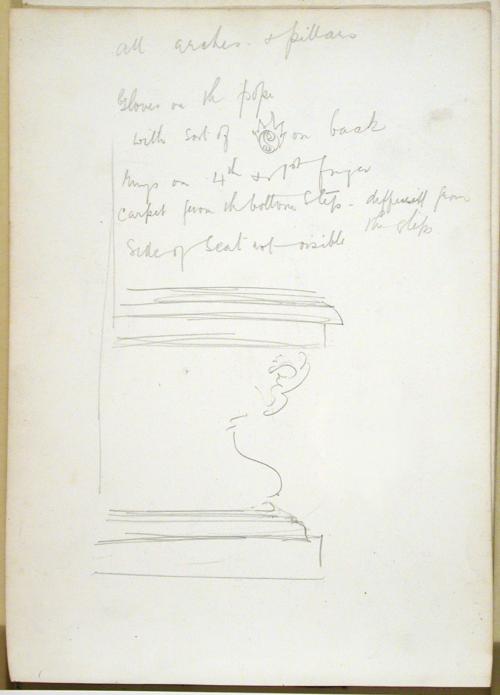 all arches & pillars
Gloves on th pope
with sort of on back
Rings on 4th & 1st finger
Carpet from th bottom Step - different from
the steps
Side of Seat not visible